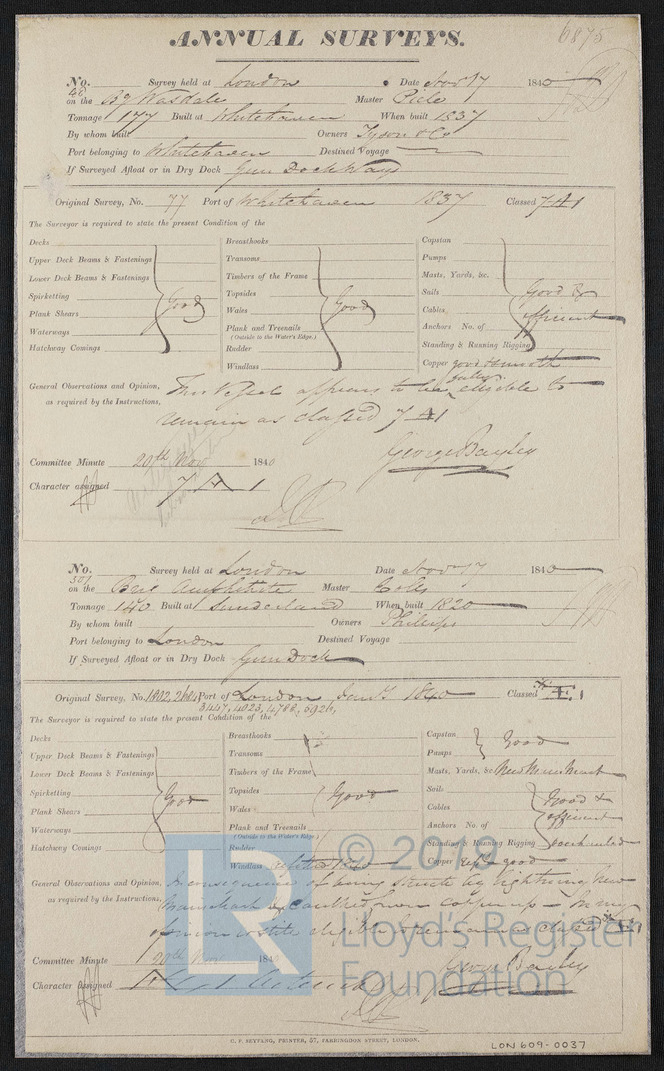 6875
ANNUAL SURVEYS.
No. 46 Survey held at London Date Nov 17 1840
on the Bg Wasdale Master Pile
Tonnage 177 Built at Whitehaven When built 1837
By whom built Owners Tyson & Co
Port belonging to Whitehaven Destined Voyage
If Surveyed Afloat or in Dry Dock Gun Dock Ways
Original Survey, No. 77 Port of Whitehaven 1837 Classed 7 A 1
The Surveyor is required to state the present Condition of the
Decks Breasthooks Capstan
Upper Deck Beams & Fastenings Transoms Pumps
Lower Deck Beams & Fastenings Timbers of the Frame Masts, Yards, &c.
Spirketting Good Topsides Good Sails Good &
Plank Shears Wales Cables efficient
Waterways Plank and Treenails (Outside to the Water's Edge.) Anchors No. of
Hatchway Comings Rudder Standing & Running Rigging
Windlass Copper good
General Observations and Opinion, This Vessel appears to be eligible to
as required by the Instructions, remain as classed 7 A 1
George Bayley
Committee Minute 20th Nov 1840
Character assigned 7 A 1
No. 301 Survey held at London Date Nov 17 1840
on the Brig Amphitrite Master Coles
Tonnage 140 Built at Sunderland When built 1820
By whom built Owners Phillips
Port belonging to London Destined Voyage
If Surveyed Afloat or in Dry Dock Gun Dock
Original Survey, No. 1802, 2684 Port of London Jany 1840 Classed
3447, 4023, 4788, 5926,
The Surveyor is required to state the present Condition of the
Decks Breasthooks Capstan Good
Upper Deck Beams & Fastenings Transoms Pumps
Lower Deck Beams & Fastenings Timbers of the Frame Masts, Yards, &c. New Main Mast
Spirketting Good Topsides Good Sails Good &
Plank Shears Wales Cables efficient
Waterways Plank and Treenails (Outside to the Water's Edge.) Anchors No. of
Hatchway Comings Rudder Standing & Running Rigging overhauled
Windlass refitted 1840 Copper good
General Observations and Opinion, In consequence of being struck by lightning New
as required by the Instructions, Mainmast & Caulked from copper up - In my
opinion is still eligible to remain as classed
George Bayley
Committee Minute 20th Nov 1840
Character assigned
C. F. SEYFANG, PRINTER, 57, FARRINGDON STREET, LONDON.
LON 609-0037
LR
© 2019
Lloyd's Register
Foundation